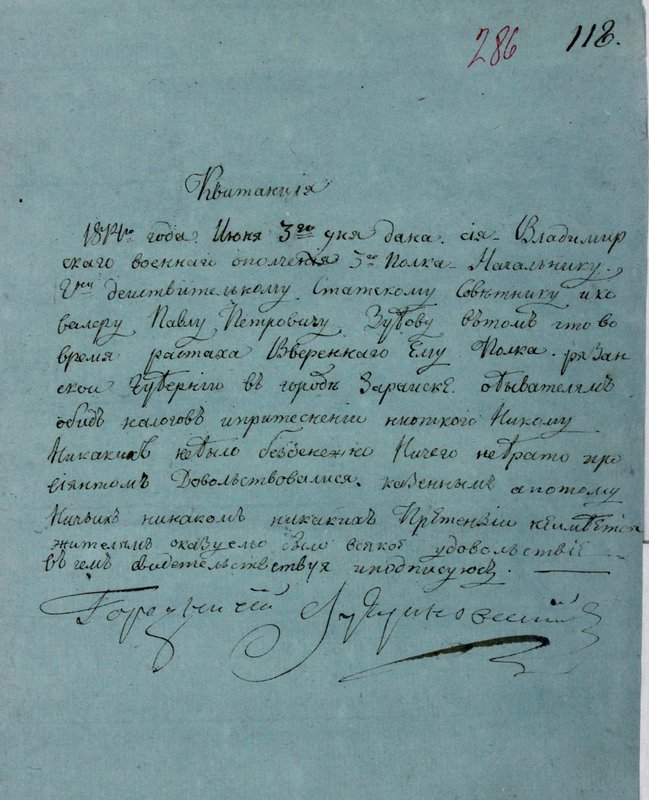 286 118.
Квитанция
1814го года Июня 3го дня дана сія Владимир
скаго военнаго ополченія 3го Полка Начальнику
Гну действительному Статскому Советнику и ка
валеру Павлу Петровичу Зубову в том что во
время растаха Ввереннаго Ему Полка рязан
ской Губерніи в городе Зарайске обывателям
обид налогов и притеснении ни от кого Никому
Никаких небыло безденежно Ничего небрато про
віянтом Довольствовалися казенным а потому
Ничьих никаком никаких Претензіи неимеется
жителям оказуемо было всякое удовольствіе
в чем свидетельствуя и подписуюсь
Городничій